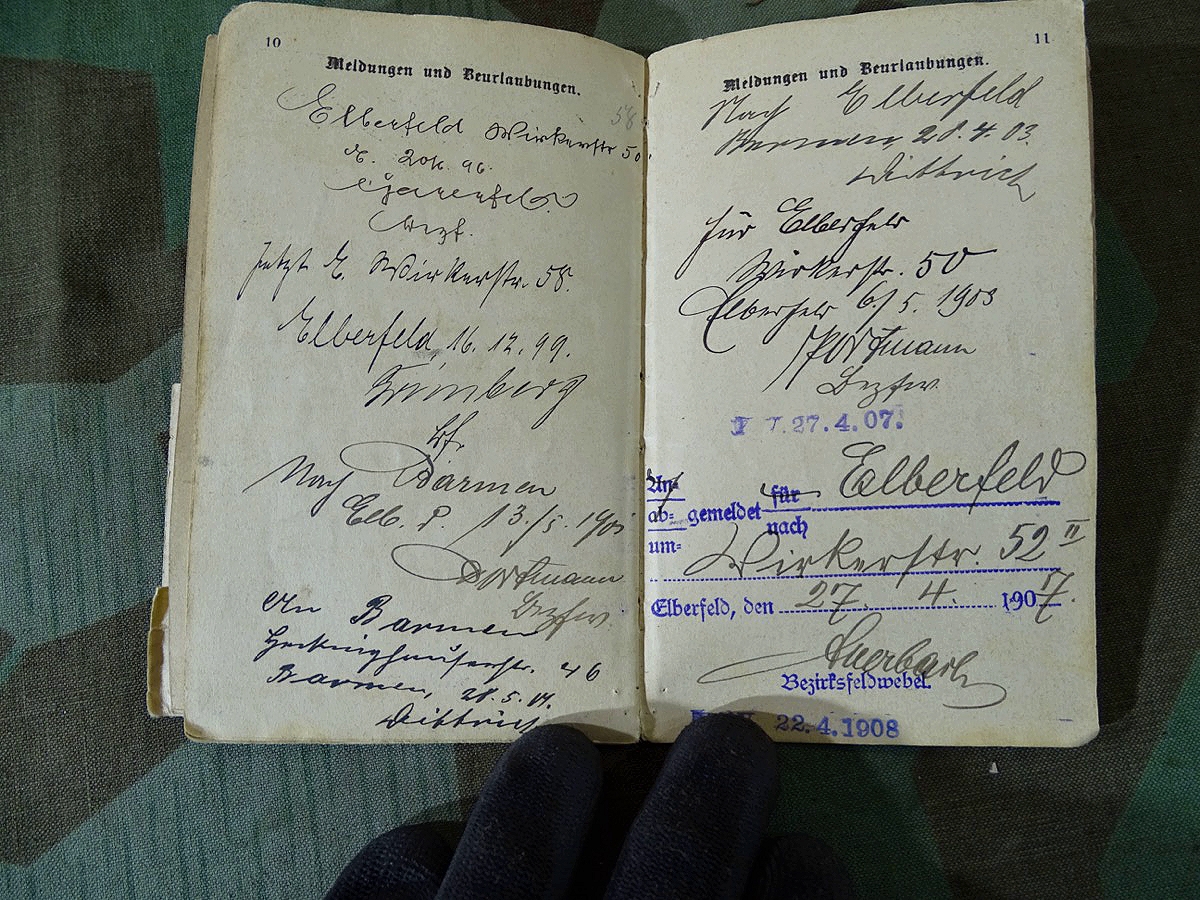 10
Meldungen und Beurlaubungen.
58
Elberfeld Wirkerstr 50.
E. 2 Ok. 96.
Bezf.
Jetzt E. Wirkerstr. 58.
Elberfeld, 16. 12. 99.
Krimberg
Bf.
Nach Barmen
Elb. d. 13./5. 1901
Dortmann
Bezfw.
An Barmen
Heckinghauserstr. 46
Barmen, 28. 5. 01.
Dittrich
11
Meldungen und Beurlaubungen.
Nach Elberfeld
Barmen 28. 4. 03.
Dittrich
für Elberfeld
Wirkerstr. 50
Elberfeld 6./5. 1903
Dortmann
Bezfw.
27.4.07.
An=
ab= gemeldet für Elberfeld
um= nach
Wirkerstr. 52 II
Elberfeld, den 27. 4. 1907.
Auerbach
Bezirksfeldwebel.
22.4.1908